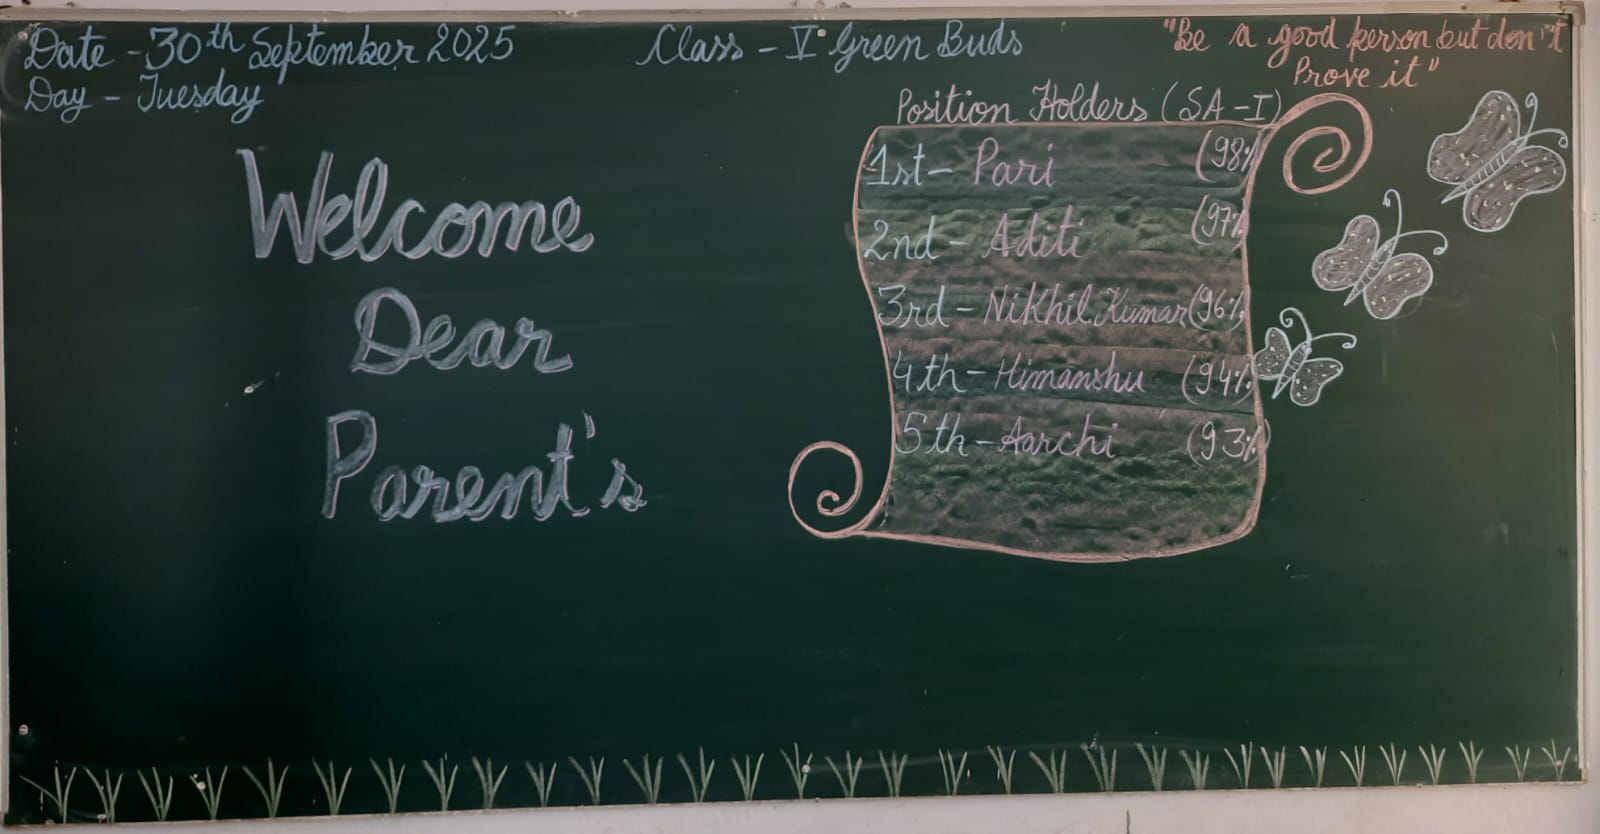 Date - 30th September 2025
Day - Tuesday
Class - V Green Buds
"Be a good person but don't
Prove it"
Welcome
Dear
Parent's
Position Holders (SA-I)
1st- Pari (98%)
2nd - Aditi (97%)
3rd - Nikhil Kumar (96%)
4th - Himanshu (94%)
5th - Aarchi (93%)